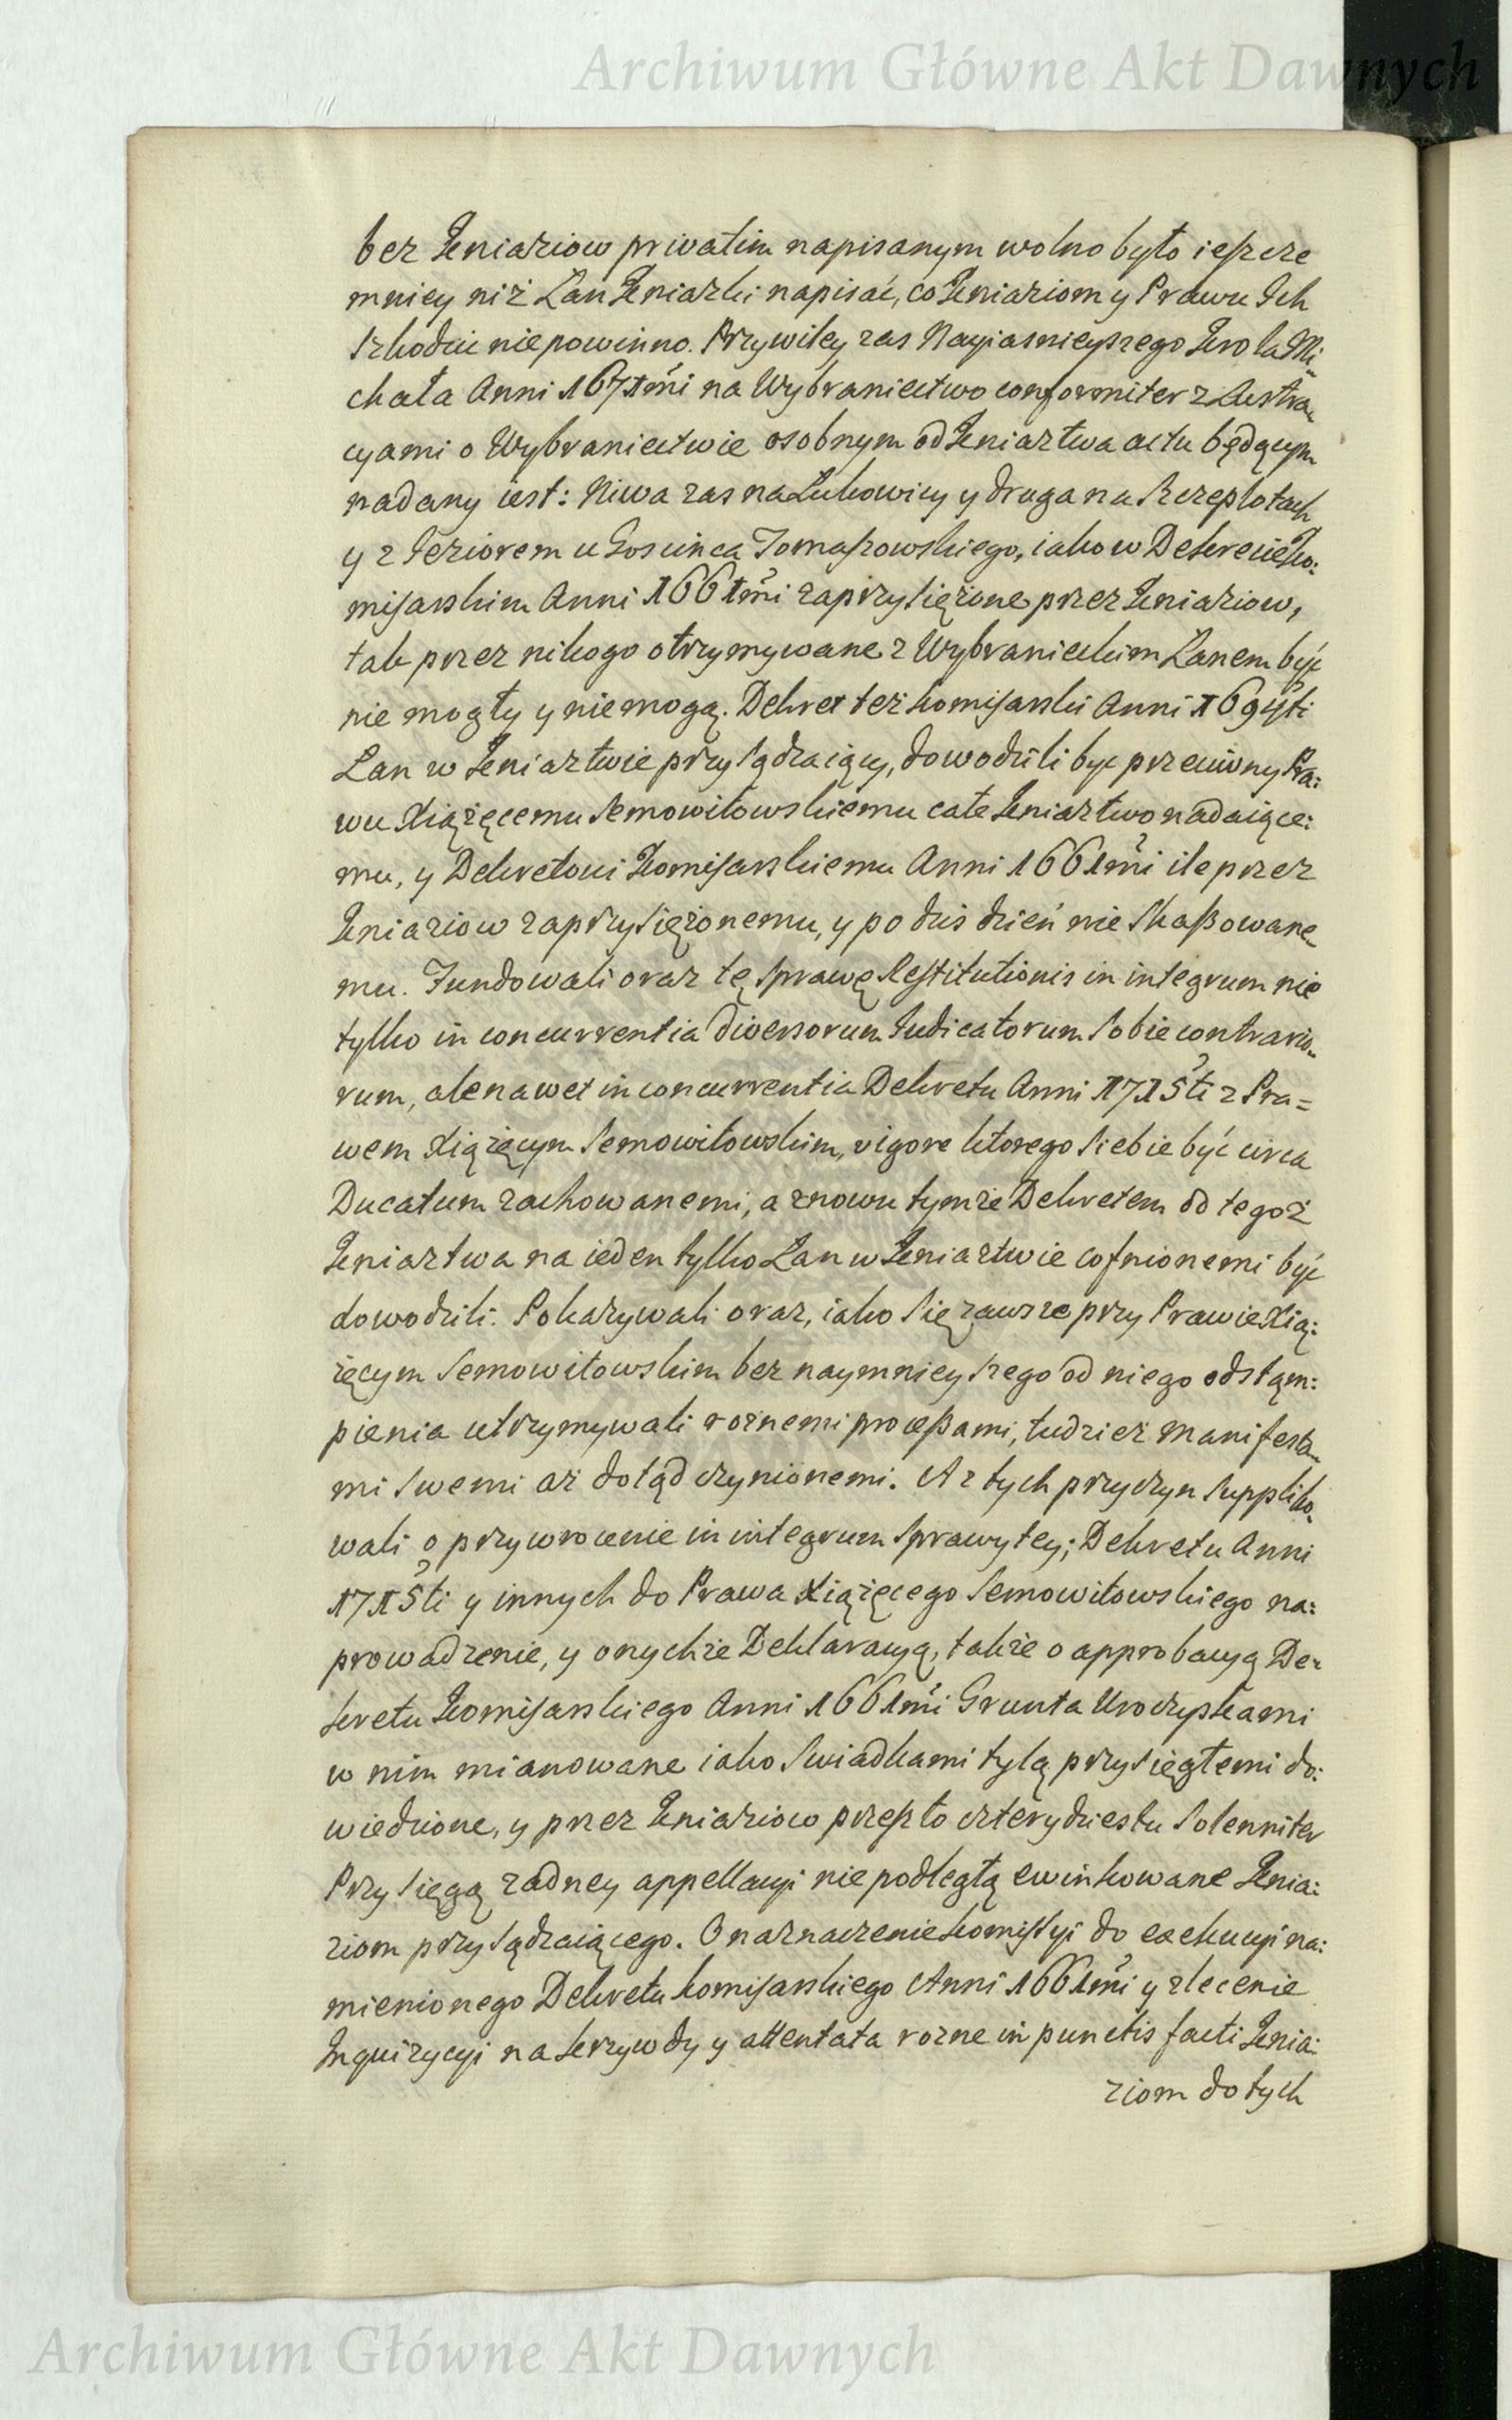 Archiwum Główne Akt Dawnych
bez Kniaziow privatim napisanym wolno było ieszcze
mniey niż Łan Kniazki napisać, co Kniaziom y Prawu Ich
szkodzic niepowinno. Przywiley zas Nayiasnieyszego Krola Mi„
chała Anni 1671mi na Wybraniectwo conformiter z Lustra„
cyami o Wybraniectwie osobnym od Kniaztwa actu będącym
nadany iest: Niwa zas na Lukowicy y druga na Szczeplotach
y z Ieziorem u Goscinca Tomaszowskiego, iako w Dekrecie Ko:
misarskim Anni 1661mi zaprzysiężone przez Kniaziow,
tak przez nikogo otrzymywane z Wybranieckim Łanem być
nie mogły y niemogą. Dekret też komisarski Anni 169
Łan w Kniaztwie przysądzaiący, dowodzili byc przeciwny Pra:
wu Xiążęcemu Semowitowskiemu całe Kniaztwo nadaiące:
mu, y Dekretowi Komisarskiemu Anni 1661mi ile przez
Kniaziow zaprzysiężonemu, y po dzis dzień nie skassowane„
mu. Fundowali oraz tę sprawę Restitutionis in integrum nie
tylko in concurrentia diversorum Iudicatorum sobie contrario„
rum, ale nawet in concurrentia Dekretu Anni 1715ti z Pra=
wem Xiążęcym Semowitowskim, vigore ktorego siebie być circa
Ducatum zachowanemi, a znowu tymże Dekretem od tegoż
Kniaztwa na ieden tylko Łan w Kniaztwie cofnionemi być
dowodzili. Pokazywali oraz, iako się zawsze przy Prawie Xią:
żęcym Semowitowskim bez naymnieyszego od niego odstąm:
pienia utrzymywali roznemi processami, tudzież manifesta„
mi swemi aż dotąd czynionemi. A z tych przyczyn suppliko„
wali o przywrocenie in integrum sprawy tey; Dekretu Anni
1715ti y innych do Prawa Xiążęcego Semowitowskiego na:
prowadzenie, y onychże Deklaracyą, także o approbacyą De„
kretu Komisarskiego Anni 1661mi Grunta Uroczyskami
w nim mianowane iako swiadkami tylą przysięgłemi do:
wiedzione, y przez Kniaziow przeszło czterydziestu solenniter
Przysięgą zadney appellacyi niepodległą ewinkowane Knia:
ziom przysądzaiącego. O naznaczenie komissyi do exekucyi na:
mienionego Dekretu komisarskiego Anni 1661mi y zlecenie
Inquizycyi na krzywdy y attentata rozne in punctis facti Knia:
ziom do tych
Archiwum Główne Akt Dawnych